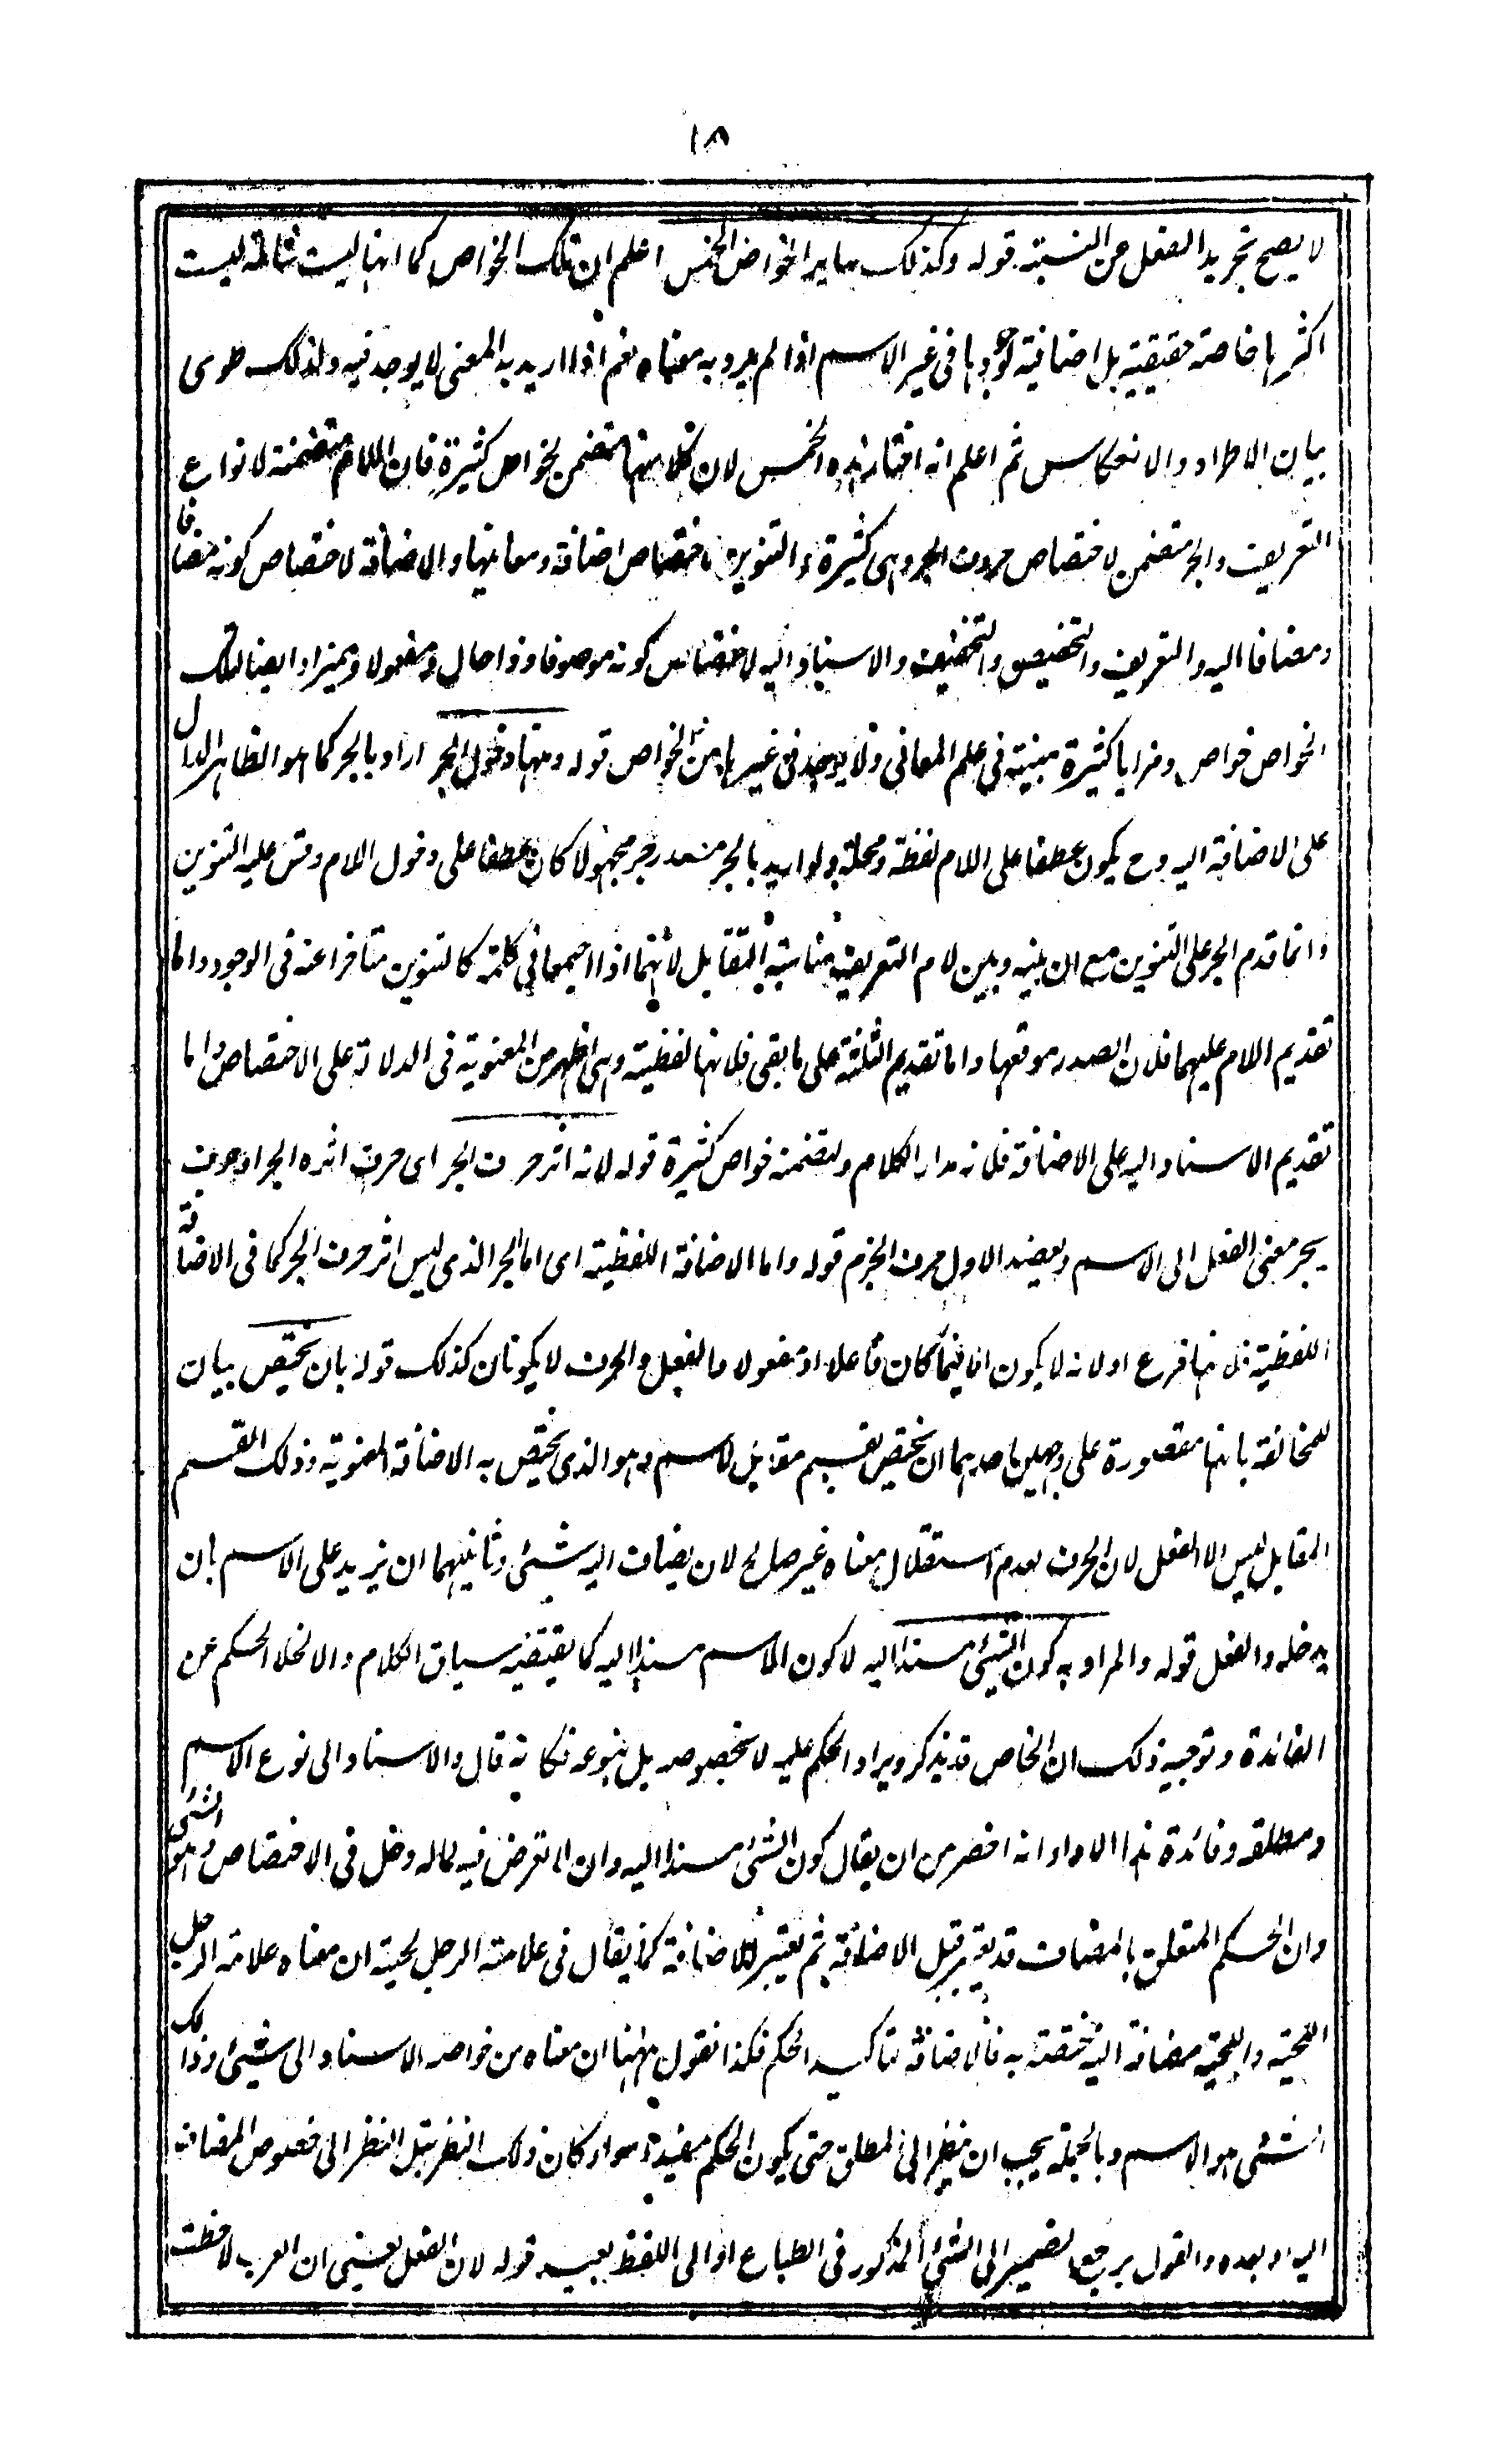 ١٨
لا يصح تجريد الفعل عن النسبة قوله وكذلك سائر الخواص الخمس اعلم ان تلك الخواص كما انها ليست شاملة ليست
اكثرها خاصة حقيقية بل اضافية لوجودها فى غير الاسم اذا لم يرد به معناه نعم اذا اريد به المعنى لا يوجد فيه ولذلك طوى
بيان الاطراد والانعكاس ثم اعلم انه اختار هذه الخمس لان كلا منها متضمن لخواص كثيرة فان اللام متضمنة لانواع
التعريف والجر متضمن لاختصاص حروف الجر وهى كثيرة والتنوين لاختصاص اضافة ومعانيها والاضافة لاختصاص كونه مضافا
ومضافا اليه والتعريف والتخصيص والتخفيف والاسناد اليه لاختصاص كونه موصوفا وذا حال ومفعولا ومميزا وايضا لتلك
الخواص خواص ومزايا كثيرة مبنية فى علم المعانى ولا يوجد فى غيرها من الخواص قوله ومنها دخول الجر اراد بالجر كما هو الظاهر الدال
على الاضافة اليه وح يكون عطفا على اللام لفظة ومحلة ولو اريد بالجر مصدر جر مجهولا كان عطفا على دخول اللام وقس عليه التنوين
وانما قدم الجر على التنوين مع ان بينه وبين لام التعريف مناسبة التقابل لانهما اذا اجتمعا فى كلمة كالتنوين متأخرا عنه فى الوجود واما
تقديم اللام عليهما فلان الصدر موقعها واما تقديم الثلثة على ما بقى فلانها لفظية وهى اظهر من المعنوية فى الدلالة على الاختصاص واما
تقديم الاسناد اليه على الاضافة فلانه مدار الكلام ولتضمنه خواص كثيرة قوله لانه اثر حرف الجر اى حرف اثره الجر او حرف
يجر معنى الفعل الى الاسم ويعضد الاول حرف الجزم قوله واما الاضافة اللفظية اى اما الجر الذى ليس اثر حرف الجر كما فى الاضافة
اللفظية فلانها فرع او لانه لا يكون الا فيما كان فاعلا او مفعولا والفعل والحرف لا يكونان كذلك قوله بان يختص بيان
للمخالفة بانها مقصورة على وجهين احدهما ان يختص بقسيم مقابل للاسم وهو الذى يختص به الاضافة المعنوية وذلك القسم
المقابل ليس الا الفعل لان الحرف لعدم استقلال معناه غير صالح لان يضاف اليه شئ وثانيهما ان يزيد على الاسم بان
يدخله والفعل قوله والمراد به كون الشئ مسندا اليه لا كون الاسم مسندا اليه كما يقتضيه سياق الكلام والا لخلا الحكم عن
الفائدة وتوجيه ذلك ان الخاص قد يذكر ويراد الحكم عليه لا بخصوصه بل بنوعه فكانه قال والاسناد الى نوع الاسم
ومطلقه وفائدة هذا الاداء انه اخصر من ان يقال كون الشئ مسندا اليه وان لا تعرض فيه لما له دخل فى الاختصاص وهو الشئ
وان الحكم المتعلق بالمضاف قد يعتبر قبل الاضافة ثم يعتبر للاضافة كما يقال فى علامة الرجل لحيته ان معناه علامة الرجل
اللحية واللحية مضافة اليه مختصة به فالاضافة تاكيد الحكم فكذا نقول ههنا ان معناه من خواصه الاسناد الى شئ وذلك
الشئ هو الاسم وبالجملة يجب ان ينظر الى المطلق حتى يكون الحكم مفيدا سواء كان ذلك النظر قبل النظر الى خصوص المضاف
اليه او بعده والقول برجع الضمير الى الشئ المذكور فى الطباع او الى اللفظ بعيد قوله لان الفعل يعنى ان العرب لاحظت